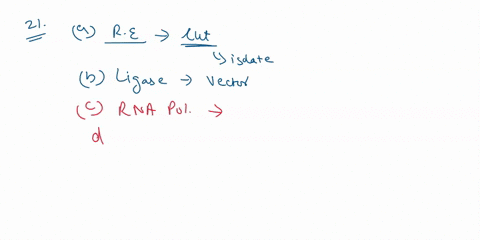 21. (a) R.E → Cut
↳ isolate
(b) Ligase → Vector
(c) RNA Pol. →
d